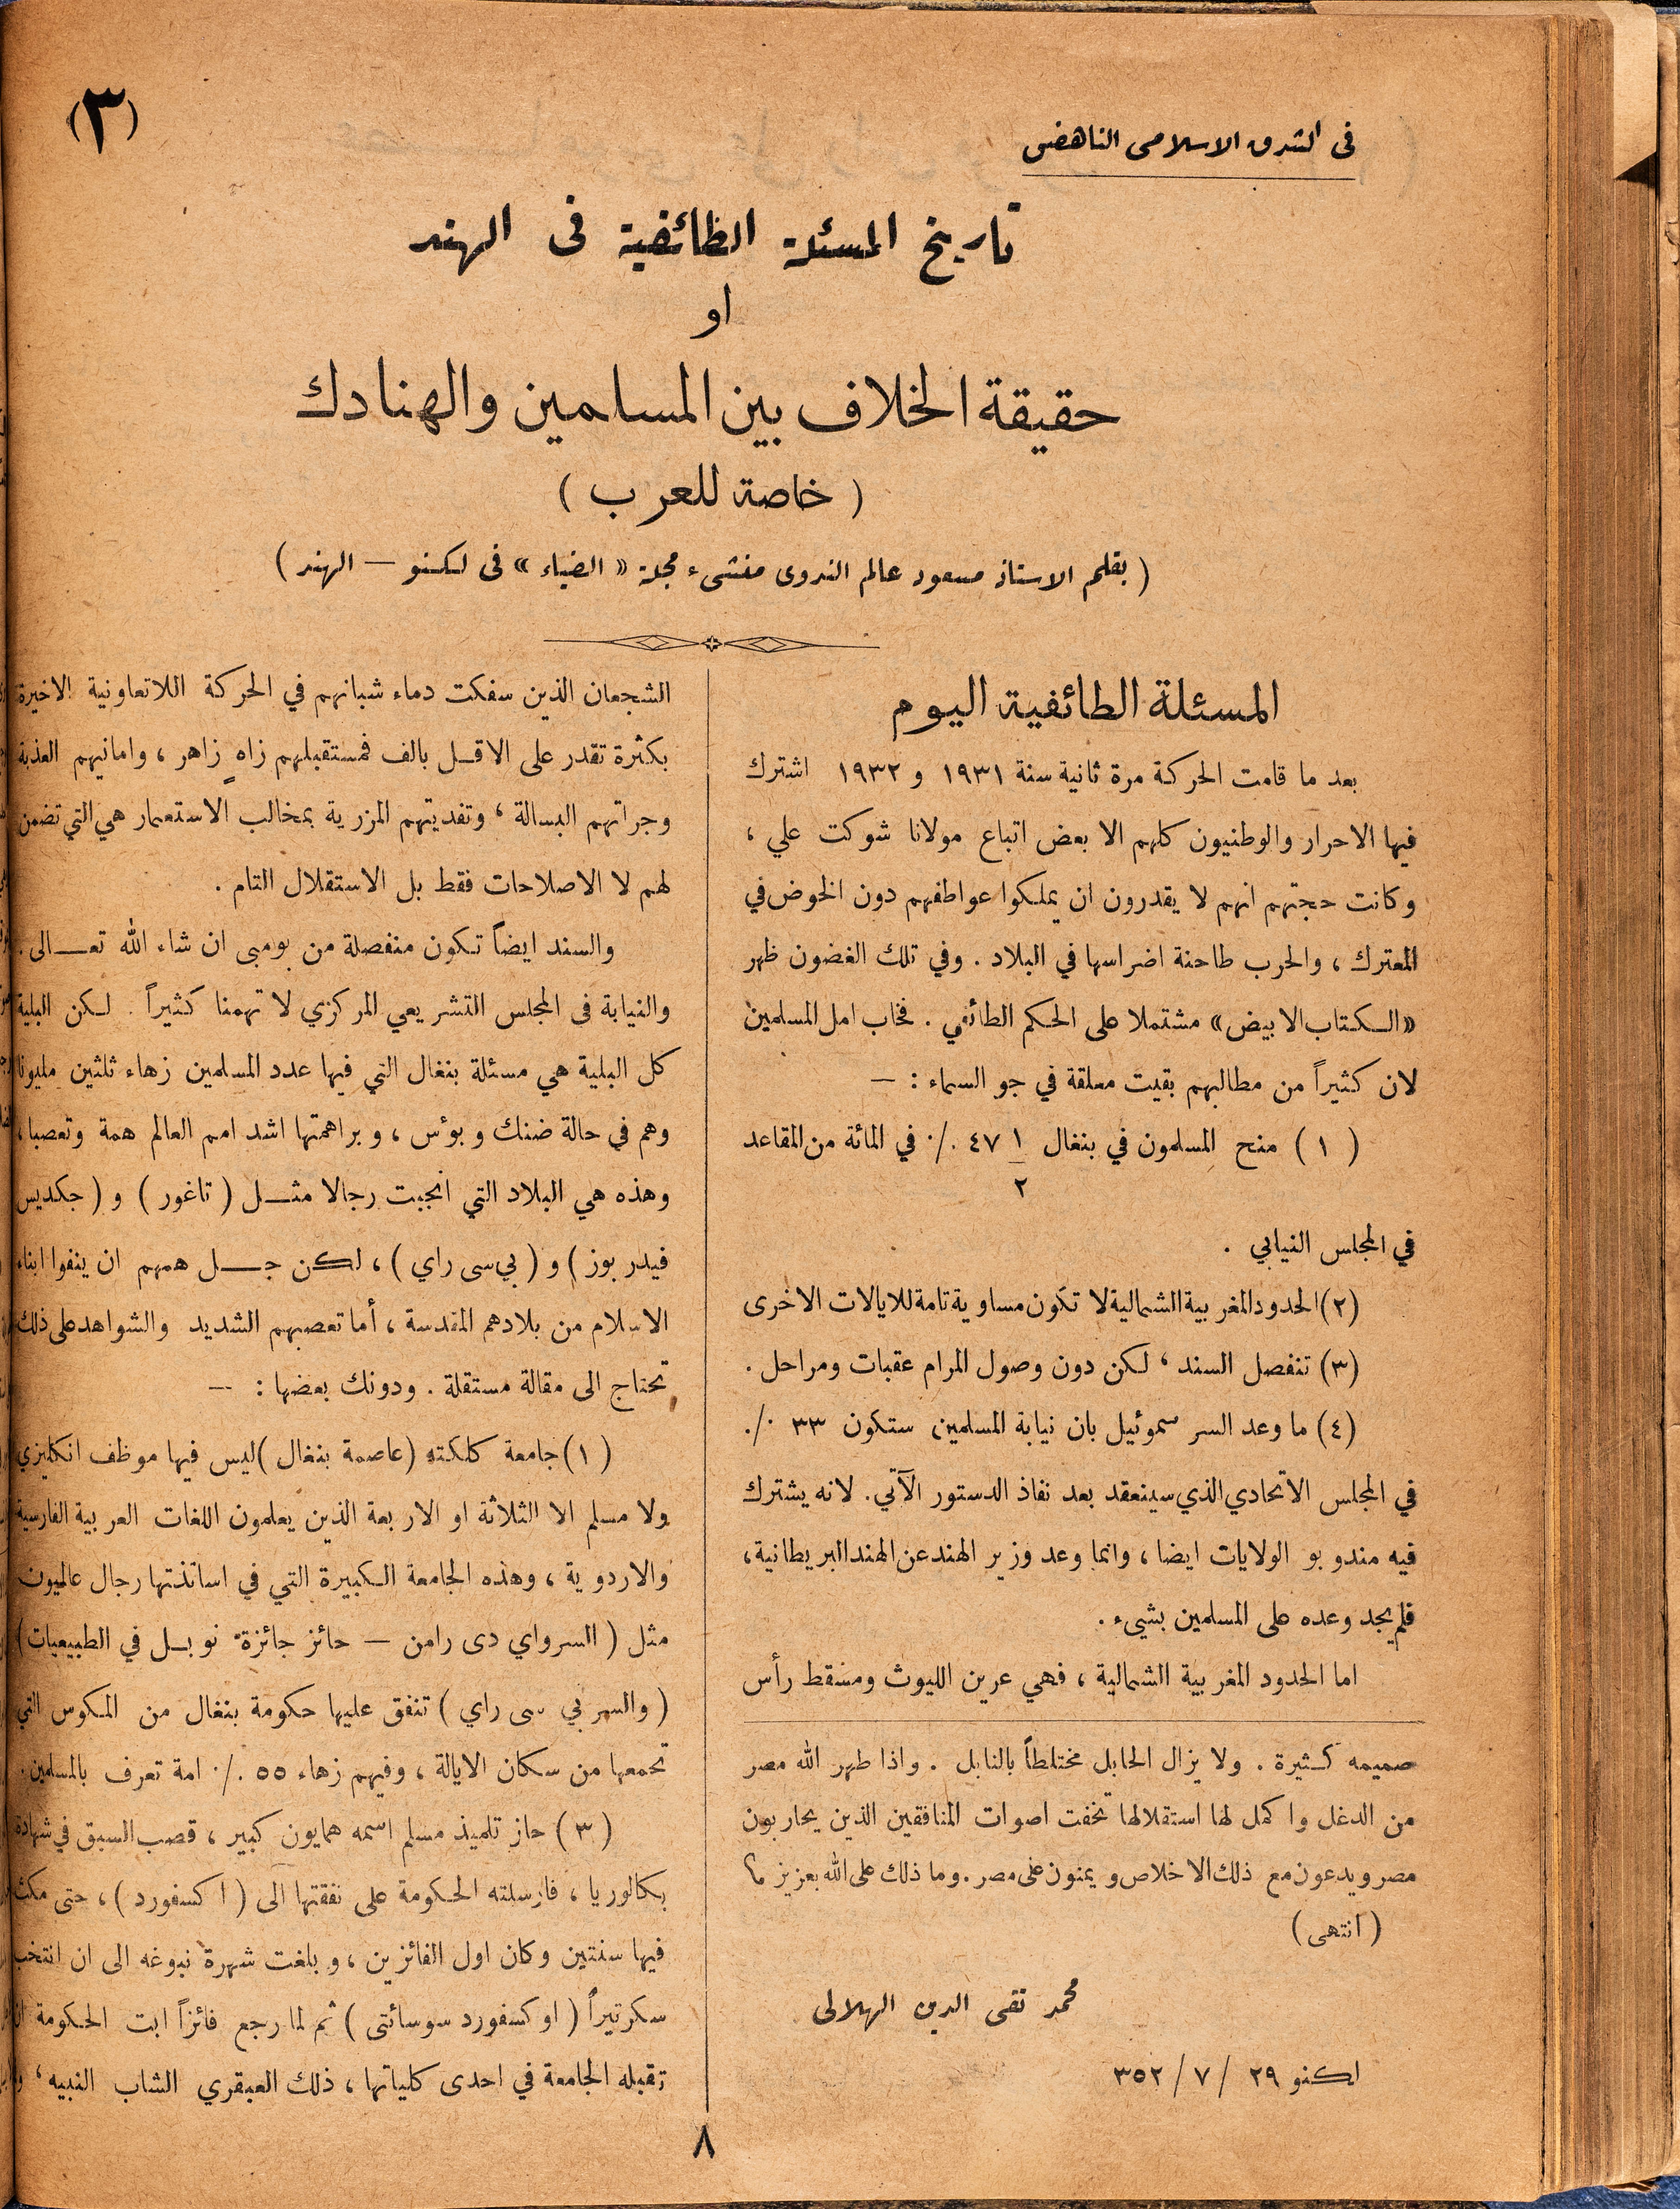 (٣)
فى الشرق الاسلامى الناهض
تاريخ المسئلة الطائفية فى الهند
او
حقيقة الخلاف بين المسلمين والهنادك
( خاصة للعرب )
( بقلم الاستاذ مسعود عالم الندوى منشىء مجلة « الضياء » فى لكنو — الهند )
المسئلة الطائفية اليوم
بعد ما قامت الحركة مرة ثانية سنة ١٩٣١ و ١٩٣٢ اشترك
فيها الاحرار والوطنيون كلهم الا بعض اتباع مولانا شوكت علي ،
وكانت حجتهم انهم لا يقدرون ان يملكوا عواطفهم دون الخوض في
المعترك ، والحرب طاحنة اضراسها في البلاد . وفي تلك الغضون ظهر
«الكتاب الابيض» مشتملا على الحكم الطائفي . فخاب امل المسلمين
لان كثيراً من مطالبهم بقيت معلقة في جو السماء : —
( ١ ) منح المسلمون في بنغال ١/٢ ٤٧ ٠/٠ في المائة من المقاعد
في المجلس النيابي .
(٢) الحدود المغربية الشمالية لا تكون مساوية تامة للايالات الاخرى
(٣) تنفصل السند ، لكن دون وصول المرام عقبات ومراحل .
(٤) ما وعد السر سموئيل بان نيابة المسلمين ستكون ٣٣ ٠/٠
في المجلس الاتحادي الذي سينعقد بعد نفاذ الدستور الآتي . لانه يشترك
فيه مندوبو الولايات ايضا ، وانما وعد وزير الهند عن الهند البريطانية ،
فلم يجد وعده على المسلمين بشيىء .
اما الحدود المغربية الشمالية ، فهي عرين الليوث ومسقط رأس
صميمه كثيرة . ولا يزال الحابل مختلطاً بالنابل . واذا طهر الله مصر
من الدغل واكمل لها استقلالها تخفت اصوات المنافقين الذين يحاربون
مصر ويدعون مع ذلك الاخلاص ويمنون على مصر . وما ذلك على الله بعزيز ؟
( انتهى )
محمد تقى الدين الهلالى
لكنو ٢٩ / ٧ / ٣٥٢
الشجعان الذين سفكت دماء شبانهم في الحركة اللاتعاونية الاخيرة
بكثرة تقدر على الاقل بالف فمستقبلهم زاهٍ زاهر ، وامانيهم العذبة
وجراتهم البسالة ، وتفديتهم المزرية بمخالب الاستعمار هي التي تضمن
لهم لا الاصلاحات فقط بل الاستقلال التام .
والسند ايضاً تكون منفصلة من بومبى ان شاء الله تعالى .
والنيابة في المجلس التشريعي المركزي لا تهمنا كثيراً . لكن البلية
كل البلية هي مسئلة بنغال التي فيها عدد المسلمين زهاء ثلثين مليونا
وهم في حالة ضنك وبوٴس ، وبراهمتها اشد امم العالم همة وتعصبا ،
وهذه هي البلاد التي انجبت رجالا مثل ( تاغور ) و ( جكديس
فيدر بوز ) و ( بي سى راي ) ، لكن جل همهم ان ينفوا ابناء
الاسلام من بلادهم المقدسة ، أما تعصبهم الشديد والشواهد على ذلك
تحتاج الى مقالة مستقلة . ودونك بعضها : —
( ١ ) جامعة كلكته ( عاصمة بنغال ) ليس فيها موظف انكليزي
ولا مسلم الا الثلاثة او الاربعة الذين يعلمون اللغات العربية الفارسية
والاردوية ، وهذه الجامعة الكبيرة التي في اساتذتها رجال عالميون
مثل ( السرواي دى رامن — حائز جائزة نوبل في الطبيعيات )
( والسر بي سى راي ) تنفق عليها حكومة بنغال من المكوس التي
تجمعها من سكان الايالة ، وفيهم زهاء ٥٥ ٠/٠ امة تعرف بالمسلمين .
( ٣ ) حاز تلميذ مسلم اسمه همايون كبير ، قصب السبق في شهادة
بكالوريا ، فارسلته الحكومة على نفقتها الى ( اكسفورد ) ، حتى مكث
فيها سنتين وكان اول الفائزين ، وبلغت شهرة نبوغه الى ان انتخب
سكرتيراً ( اوكسفورد سوسائتى ) ثم لما رجع فائزاً ابت الحكومة ان
تقبله الجامعة في احدى كلياتها ، ذلك العبقري الشاب النبيه ،
٨